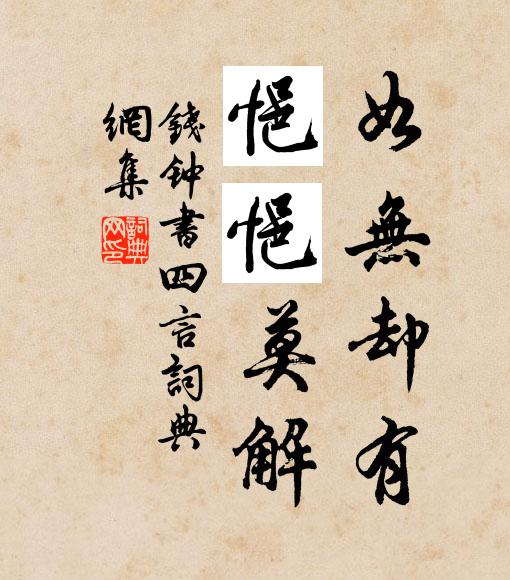 如無却有
悒悒莫解
錢钟書四言詞典
網集
詞典
网印